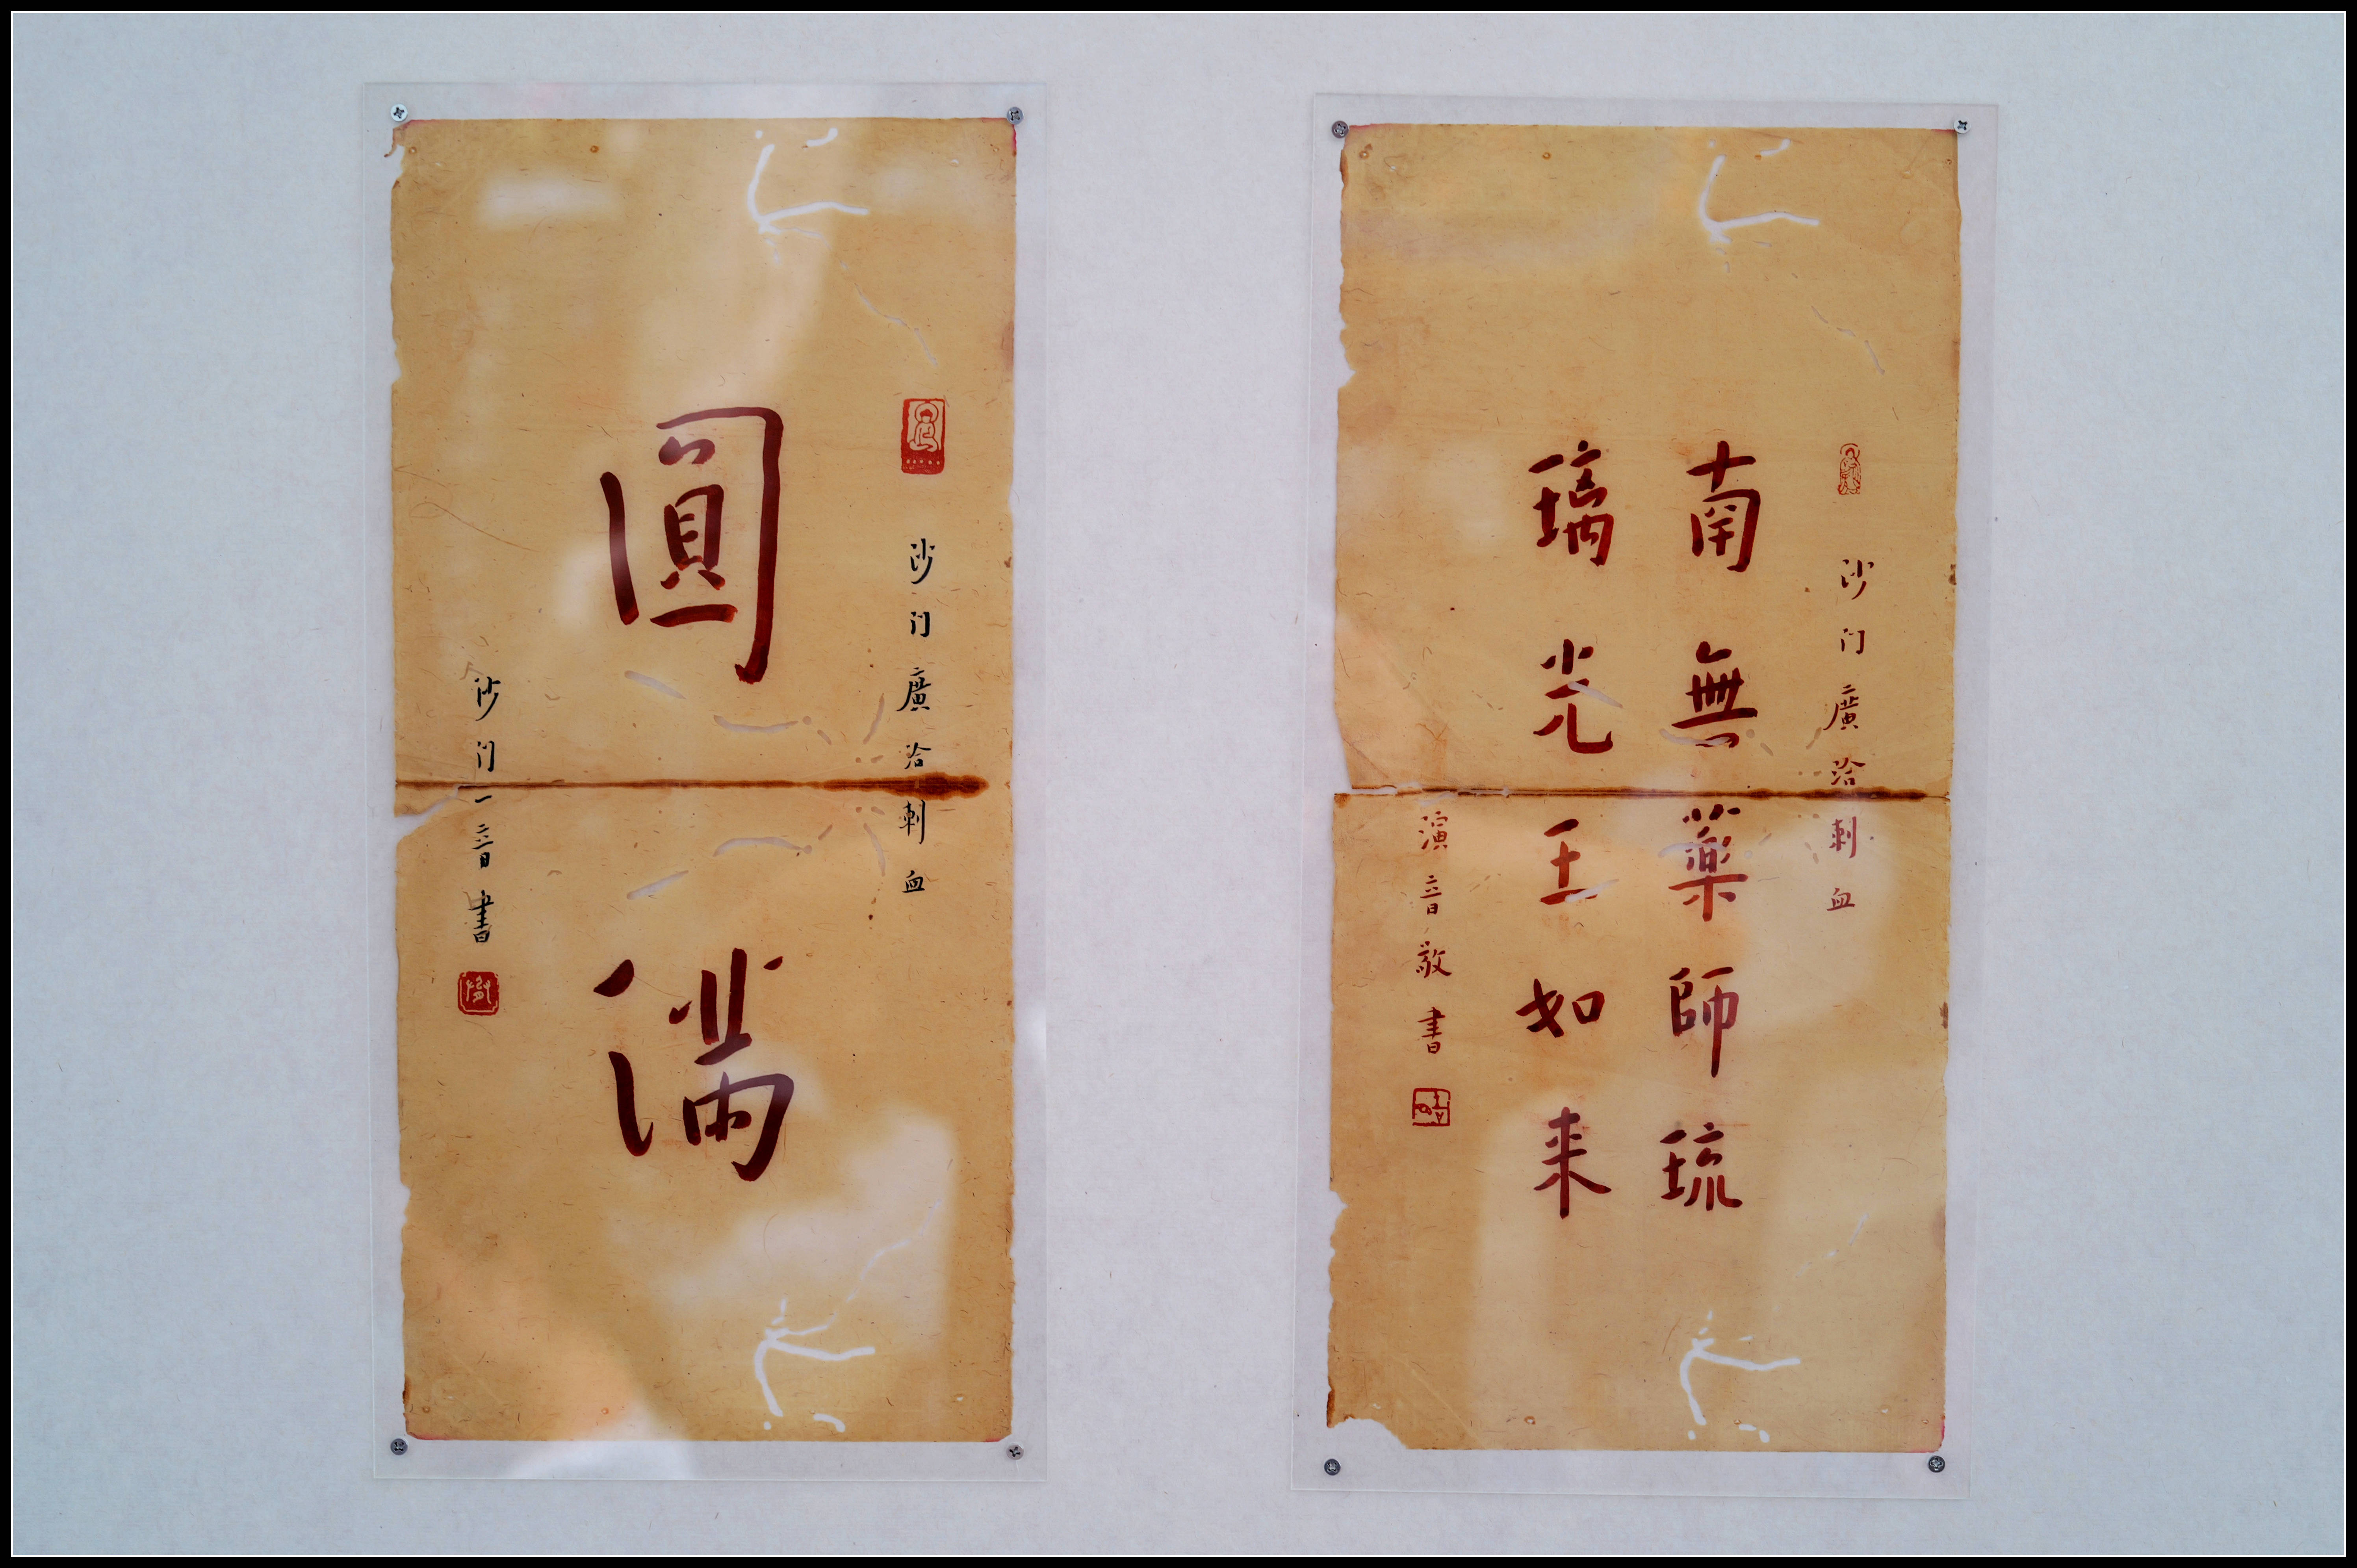 沙门廣洽刺血
南無藥師琉
璃光王如来
演音敬書
沙门廣洽刺血
圓滿
沙门一音書